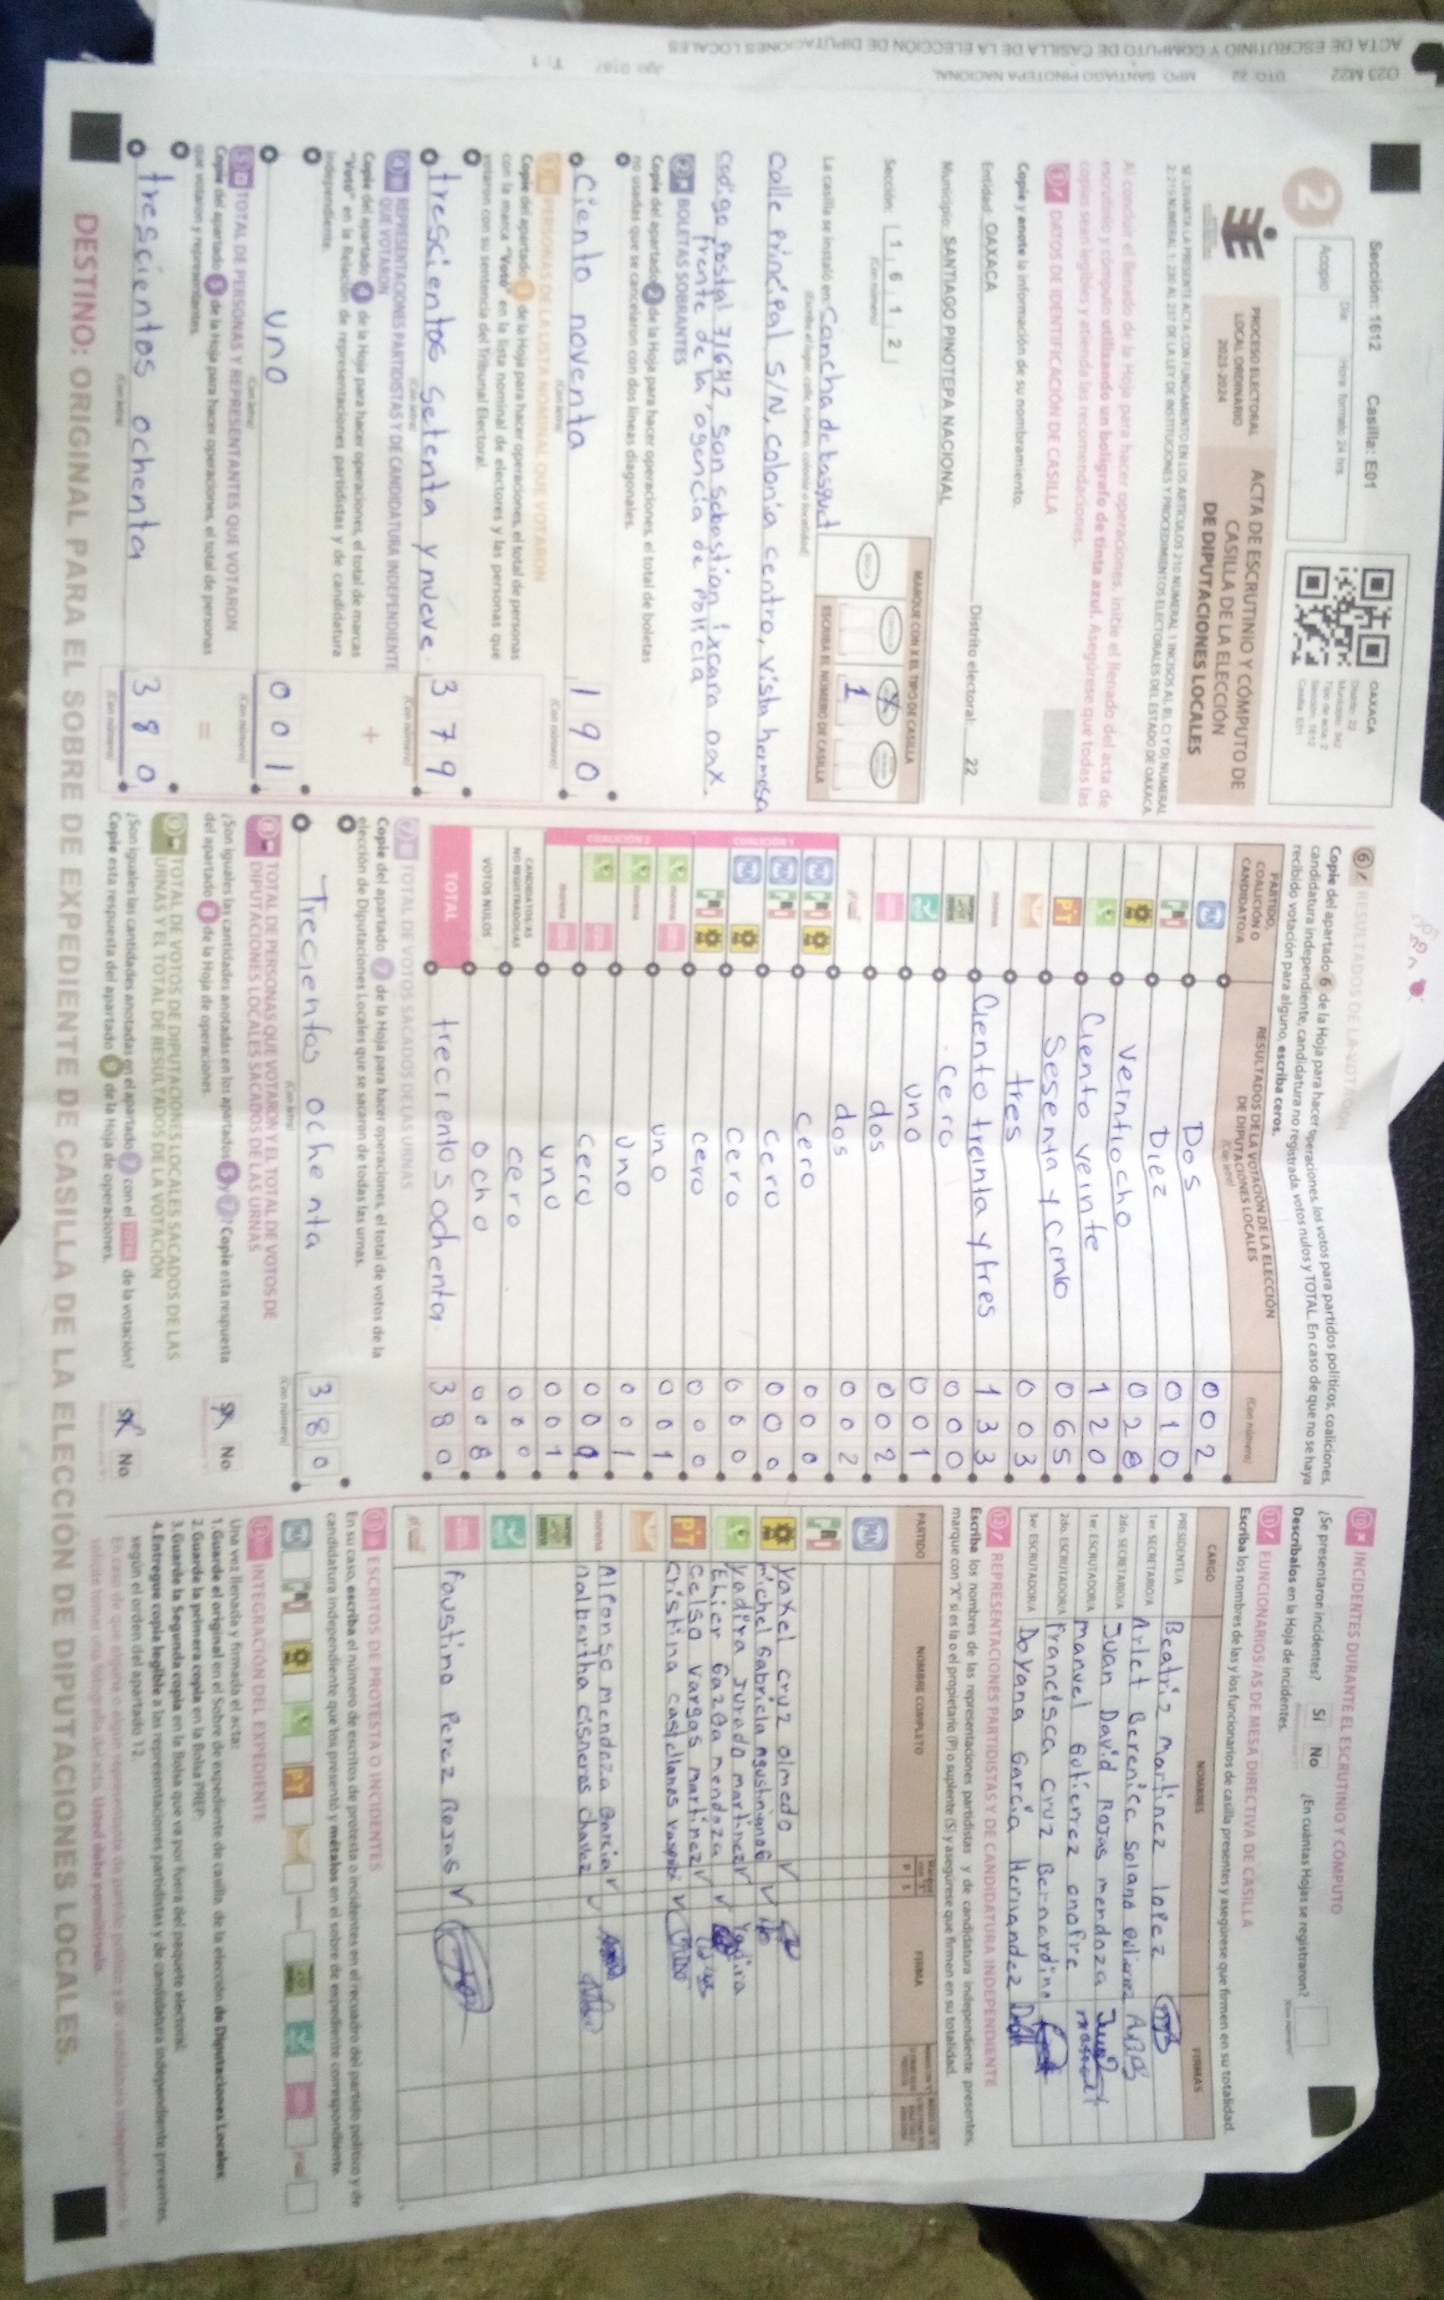 Sección: 1612 Casilla: E01
Día Hora formato 24 hrs.
Acopio
2
OAXACA
PROCESO ELECTORAL
LOCAL ORDINARIO
2023-2024
ACTA DE ESCRUTINIO Y CÓMPUTO DE
CASILLA DE LA ELECCIÓN
DE DIPUTACIONES LOCALES
Al concluir el llenado de la Hoja para hacer operaciones, inicie el llenado del acta de
escrutinio y cómputo utilizando un bolígrafo de tinta azul. Asegúrese que todas las
copias sean legibles y atienda las recomendaciones.
1 DATOS DE IDENTIFICACIÓN DE CASILLA
Copie y anote la información de su nombramiento.
Entidad: OAXACA Distrito electoral: 22
Municipio: SANTIAGO PINOTEPA NACIONAL
Sección: 1 6 1 2
(Con número)
MARQUE CON X EL TIPO DE CASILLA
X
1
ESCRIBA EL NÚMERO DE CASILLA
La casilla se instaló en: Cancha de basquet
calle principal S/N, colonia centro, vista hermosa
codigo postal 71642, san sebastian ixcapa oax.
frente de la agencia de policia
2 BOLETAS SOBRANTES
Copie del apartado 2 de la Hoja para hacer operaciones, el total de boletas
no usadas que se cancelaron con dos líneas diagonales.
Ciento noventa 190
(Con letra) (Con número)
3 PERSONAS DE LA LISTA NOMINAL QUE VOTARON
Copie del apartado 3 de la Hoja para hacer operaciones, el total de personas
con la marca "Votó" en la lista nominal de electores y las personas que
votaron con su sentencia del Tribunal Electoral.
trescientos setenta y nueve 379
(Con letra) (Con número)
4 REPRESENTACIONES PARTIDISTAS Y DE CANDIDATURA INDEPENDIENTE
QUE VOTARON
Copie del apartado 4 de la Hoja para hacer operaciones, el total de marcas
"Votó" en la Relación de representaciones partidistas y de candidatura
independiente.
+
uno 001
(Con letra) (Con número)
5 TOTAL DE PERSONAS Y REPRESENTANTES QUE VOTARON
Copie del apartado 5 de la Hoja para hacer operaciones, el total de personas
que votaron y representantes.
=
trescientos ochenta 380
(Con letra) (Con número)
6 RESULTADOS DE LA VOTACIÓN
Copie del apartado 6 de la Hoja para hacer operaciones, los votos para partidos políticos, coaliciones,
candidatura independiente, candidatura no registrada, votos nulos y TOTAL. En caso de que no se haya
recibido votación para alguno, escriba ceros.
PARTIDO,
COALICIÓN O
CANDIDATO/A
RESULTADOS DE LA VOTACIÓN DE LA ELECCIÓN
DE DIPUTACIONES LOCALES
(Con letra) (Con número)
PAN Dos 002
PRI Diez 010
Veintiocho 028
Ciento veinte 120
PT Sesenta y cinco 065
tres 003
morena Ciento treinta y tres 133
cero 000
uno 001
dos 002
dos 002
cero 000
cero 000
cero 000
cero 000
uno 001
uno 001
cero 000
uno 001
CANDIDATOS/AS
NO REGISTRADOS/AS cero 000
VOTOS NULOS ocho 008
TOTAL trecientos ochenta 380
7 TOTAL DE VOTOS SACADOS DE LA URNAS
Copie del apartado 7 de la Hoja para hacer operaciones, el total de votos de la
elección de Diputaciones Locales que se sacaron de todas las urnas.
Trecientos ochenta 380
(Con letra) (Con número)
8 TOTAL DE PERSONAS QUE VOTARON Y EL TOTAL DE VOTOS DE
DIPUTACIONES LOCALES SACADOS DE LAS URNAS
¿Son iguales las cantidades anotadas en los apartados 5 y 7? Copie esta respuesta
del apartado 8 de la Hoja de operaciones. Sí No
9 TOTAL DE VOTOS DE DIPUTACIONES LOCALES SACADOS DE LAS
URNAS Y EL TOTAL DE RESULTADOS DE LA VOTACIÓN
¿Son iguales las cantidades anotadas en el apartado 7 con el TOTAL de la votación?
Copie esta respuesta del apartado 9 de la Hoja de operaciones. Sí No
10 INCIDENTES DURANTE EL ESCRUTINIO Y CÓMPUTO
¿Se presentaron incidentes? Sí No ¿En cuántas Hojas se registraron?
Descríbalos en la Hoja de incidentes.
11 FUNCIONARIOS/AS DE MESA DIRECTIVA DE CASILLA
Escriba los nombres de las y los funcionarios de casilla presentes y asegúrese que firmen en su totalidad.
CARGO NOMBRES FIRMAS
PRESIDENTE/A Beatriz martinez lopez
1er. SECRETARIO/A Arlet Berenice Solano
2do. SECRETARIO/A Juan David Rojas mendoza
1er. ESCRUTADOR/A manuel Gutierrez onofre
2do. ESCRUTADOR/A Francisca cruz Bernardino
3er. ESCRUTADOR/A Doyana Garcia Hernandez
12 REPRESENTACIONES PARTIDISTAS Y DE CANDIDATURA INDEPENDIENTE
Escriba los nombres de las representaciones partidistas y de candidatura independiente presentes,
marque con "X" si es la o el propietario (P) o suplente (S) y asegúrese que firmen en su totalidad.
PARTIDO NOMBRE COMPLETO FIRMA
PAN
PRI
Yaxel cruz olmedo
michel Gabriela
Yadira Jurado martinez Yadira
Ehier mendoza
PT celso vargas martinez
Cristina castellanos
morena Alfonso mendoza Garcia
cisneros
Faustino Perez Rojas
13 ESCRITOS DE PROTESTA O INCIDENTES
En su caso, escriba el número de escritos de protesta o incidentes en el recuadro del partido político y de
candidatura independiente que los presentó y métalos en el sobre de expediente correspondiente.
INTEGRACIÓN DEL EXPEDIENTE
Una vez llenada y firmada el acta:
1. Guarde el original en el Sobre de expediente de casilla de la elección de Diputaciones Locales.
2. Guarde la primera copia en la Bolsa PREP.
3. Guarde la segunda copia en la Bolsa que va por fuera del paquete electoral.
4. Entregue copia legible a las representaciones partidistas y de candidatura independiente presentes,
según el orden del apartado 12.
DESTINO: ORIGINAL PARA EL SOBRE DE EXPEDIENTE DE CASILLA DE LA ELECCIÓN DE DIPUTACIONES LOCALES.